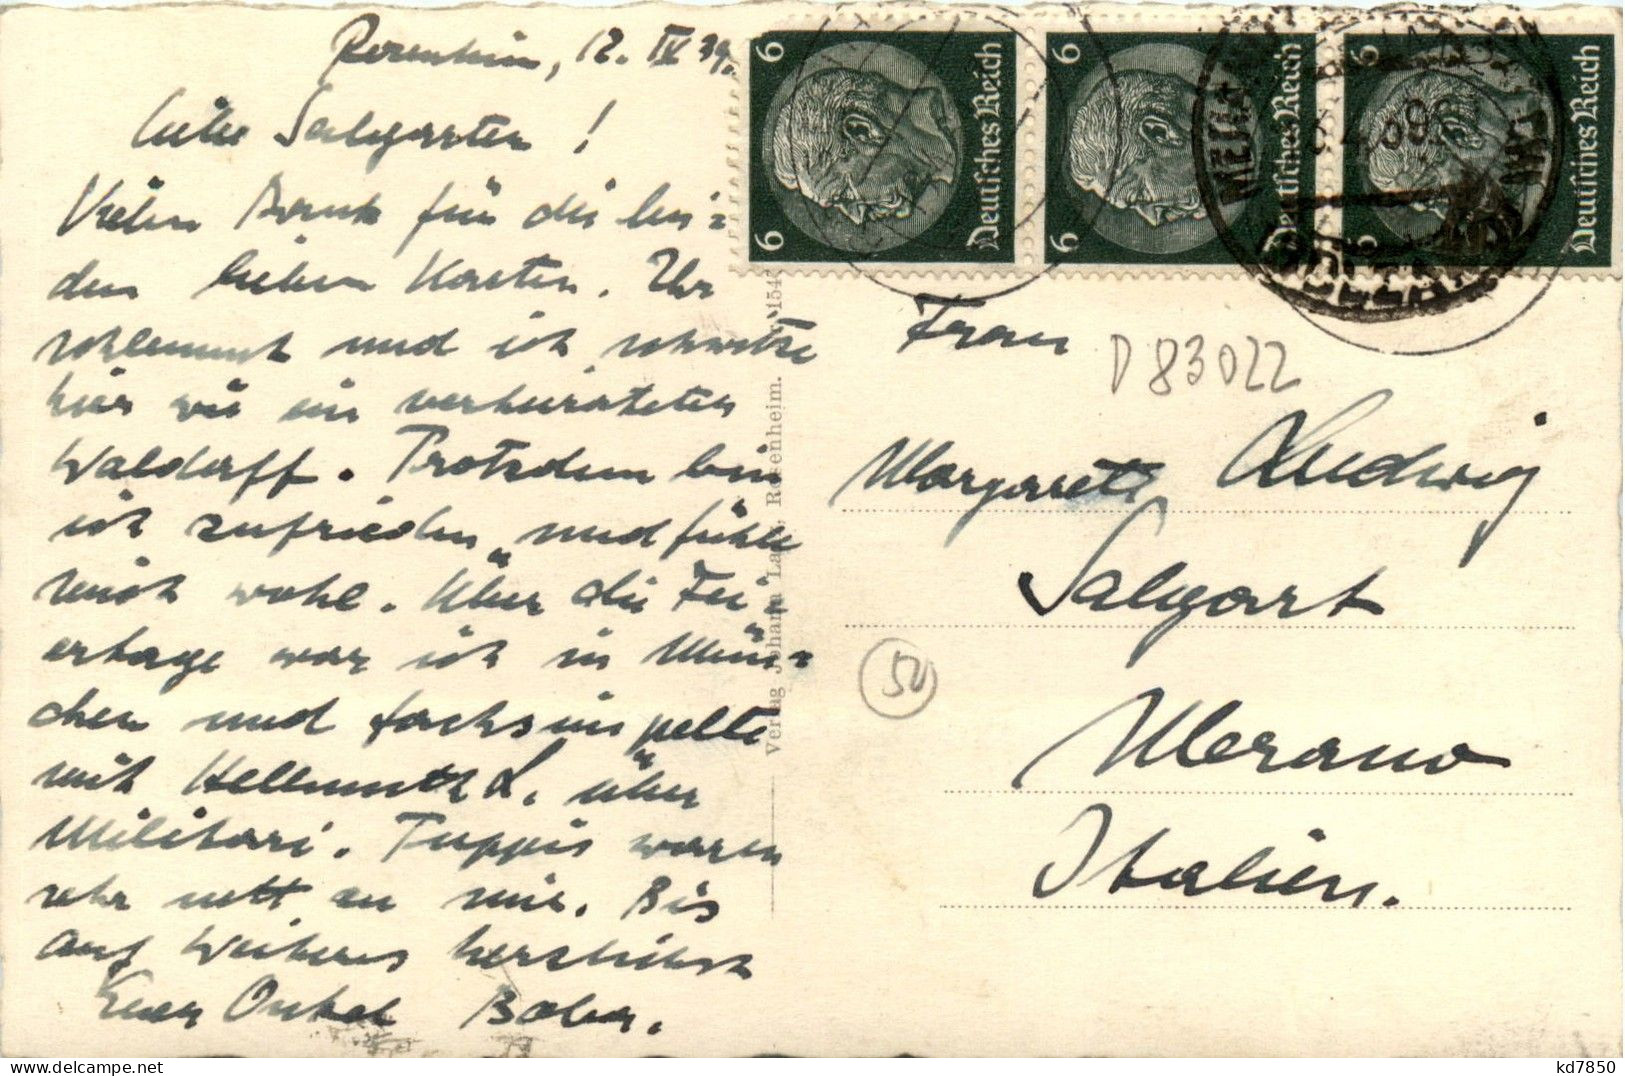 Rosenheim, 12. IV 39.
Liebe Salgarten!
Vielen Dank für die bei-
den lieben Karten. Ihr
schlemmt und ich schwitze
hier wie ein verheirateter
Waldorff. Trotzdem bin
ich zufrieden und fühle
mich wohl. Über die Fei-
ertage war ich in Mün-
chen und fachsimpelte
mit Hellmuth L. über
Militari. Tuppis waren
sehr nett zu mir. Bis
auf Weiteres herzlichst
Euer Onkel
Verlag Johanna La Rosenheim. 154
6 Deutsches Reich 6
6 Deutsches Reich 6
6 Deutsches Reich 6
Frau
D 83022
Margarete Ludwig
Salgart
50
Merano
Italien.
kd7850